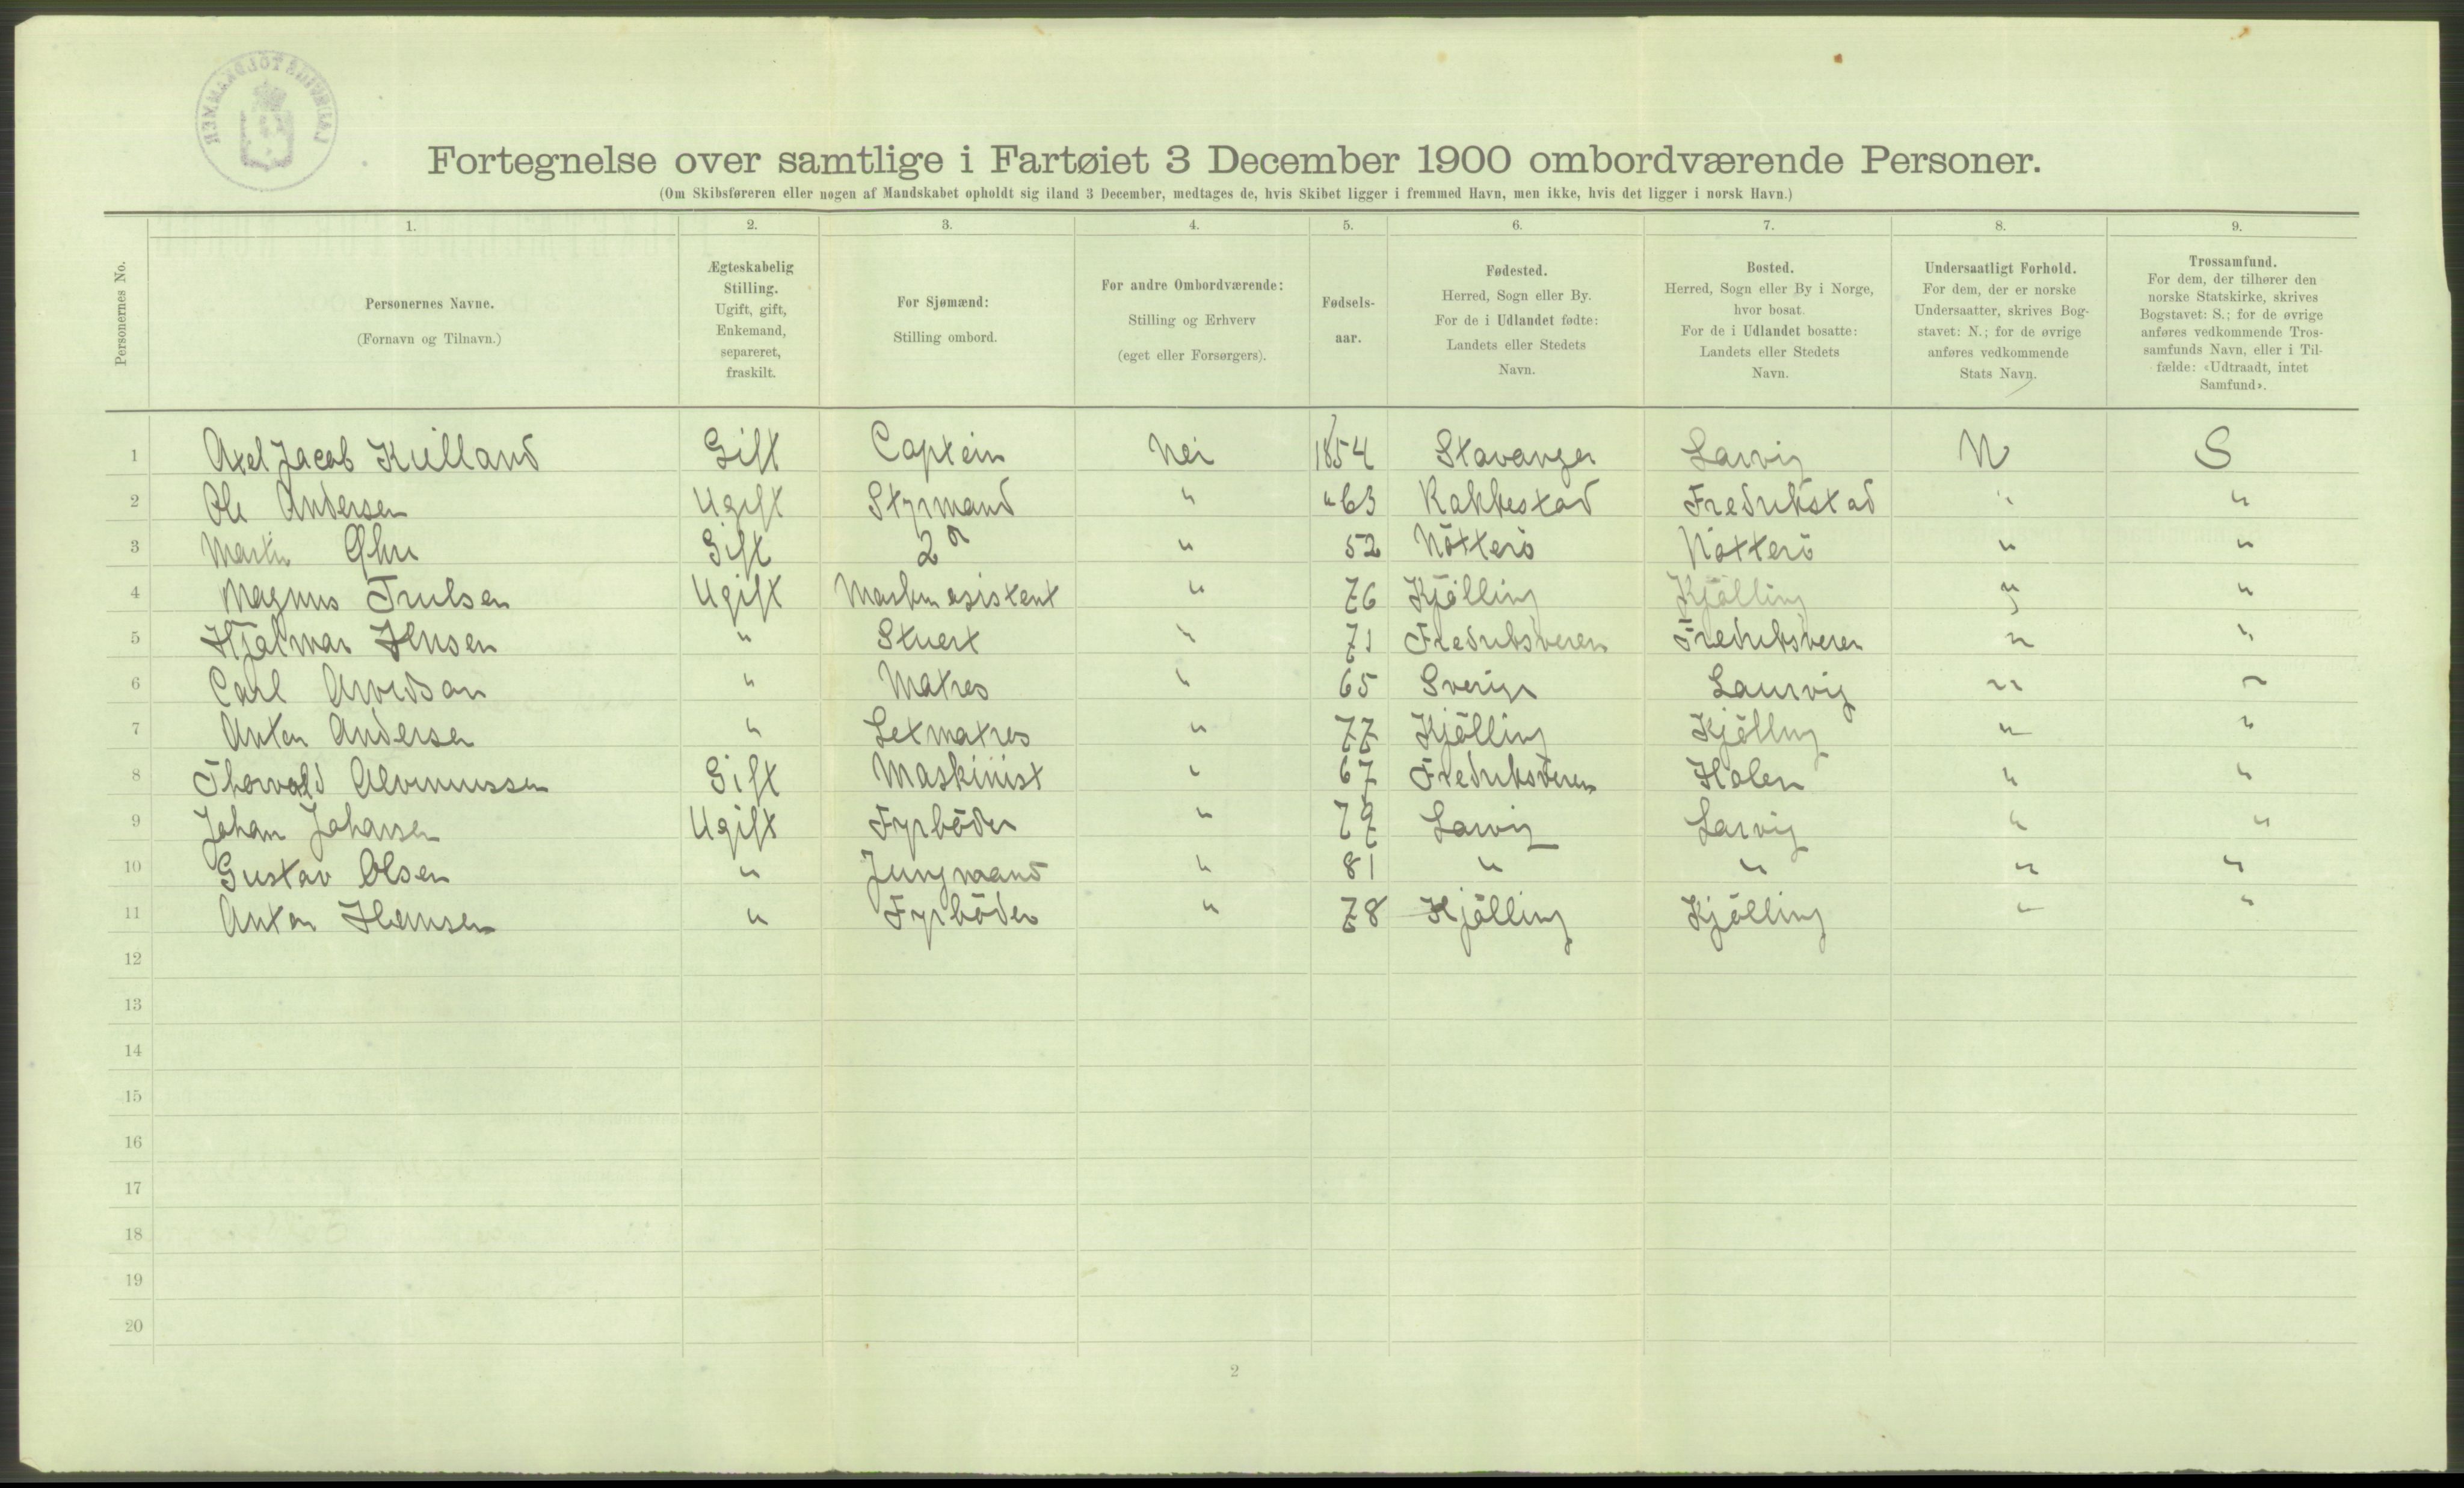 LAURVIGS TOLDKAMMER
Fortegnelse over samtlige i Fartøiet 3 December 1900 ombordværende Personer.
(Om Skibsføreren eller nogen af Mandskabet opholdt sig iland 3 December, medtages de, hvis Skibet ligger i fremmed Havn, men ikke, hvis det ligger i norsk Havn.)
Personernes No.
1. 2. 3. 4. 5. 6. 7. 8. 9.
Personernes Navne.
(Fornavn og Tilnavn.)
Ægteskabelig
Stilling.
Ugift, gift,
Enkemand,
separeret,
fraskilt.
For Sjømænd:
Stilling ombord.
For andre Ombordværende:
Stilling og Erhverv
(eget eller Forsørgers).
Fødsels-
aar.
Fødested.
Herred, Sogn eller By.
For de i Udlandet fødte:
Landets eller Stedets
Navn.
Bosted.
Herred, Sogn eller By i Norge,
hvor bosat.
For de i Udlandet bosatte:
Landets eller Stedets
Navn.
Undersaatligt Forhold.
For dem, der er norske
Undersaatter, skrives Bog-
stavet: N.; for de øvrige
anføres vedkommende
Stats Navn.
Trossamfund.
For dem, der tilhører den
norske Statskirke, skrives
Bogstavet: S.; for de øvrige
anføres vedkommende Tros-
samfunds Navn, eller i Til-
fælde: «Udtraadt, intet
Samfund».
1 Axel Jacob Kielland Gift Captein Nei 1854 Stavanger Larvig N S
2 Ole Andersen Ugift Styrmand " " 63 Rakkestad Fredrikstad " "
3 Martin Gift 2 " 52 Nötterö Nötterö " "
4 Magnus Trulsen Ugift Maskinasistent " 76 Kjölling Kjölling " "
5 Hjalmar Jensen " Stuert " 71 Fredriksveren Fredriksveren " "
6 Carl Arvidson " Matros " 65 Sverige Laurvig " "
7 Anton Andersen " Letmatros " 77 Kjölling Kjölling " "
8 Thorvald Gift Maskinist " 67 Fredriksveren Halen " "
9 Johan Johansen Ugift Fyrböder " 79 Larvig Larvig " "
10 Gustav Olsen " Jungmand " 81 " " " "
11 Anton Hansen " Fyrböder " 78 Kjölling Kjölling " "
12
13
14
15
16
17
18
19
20
2